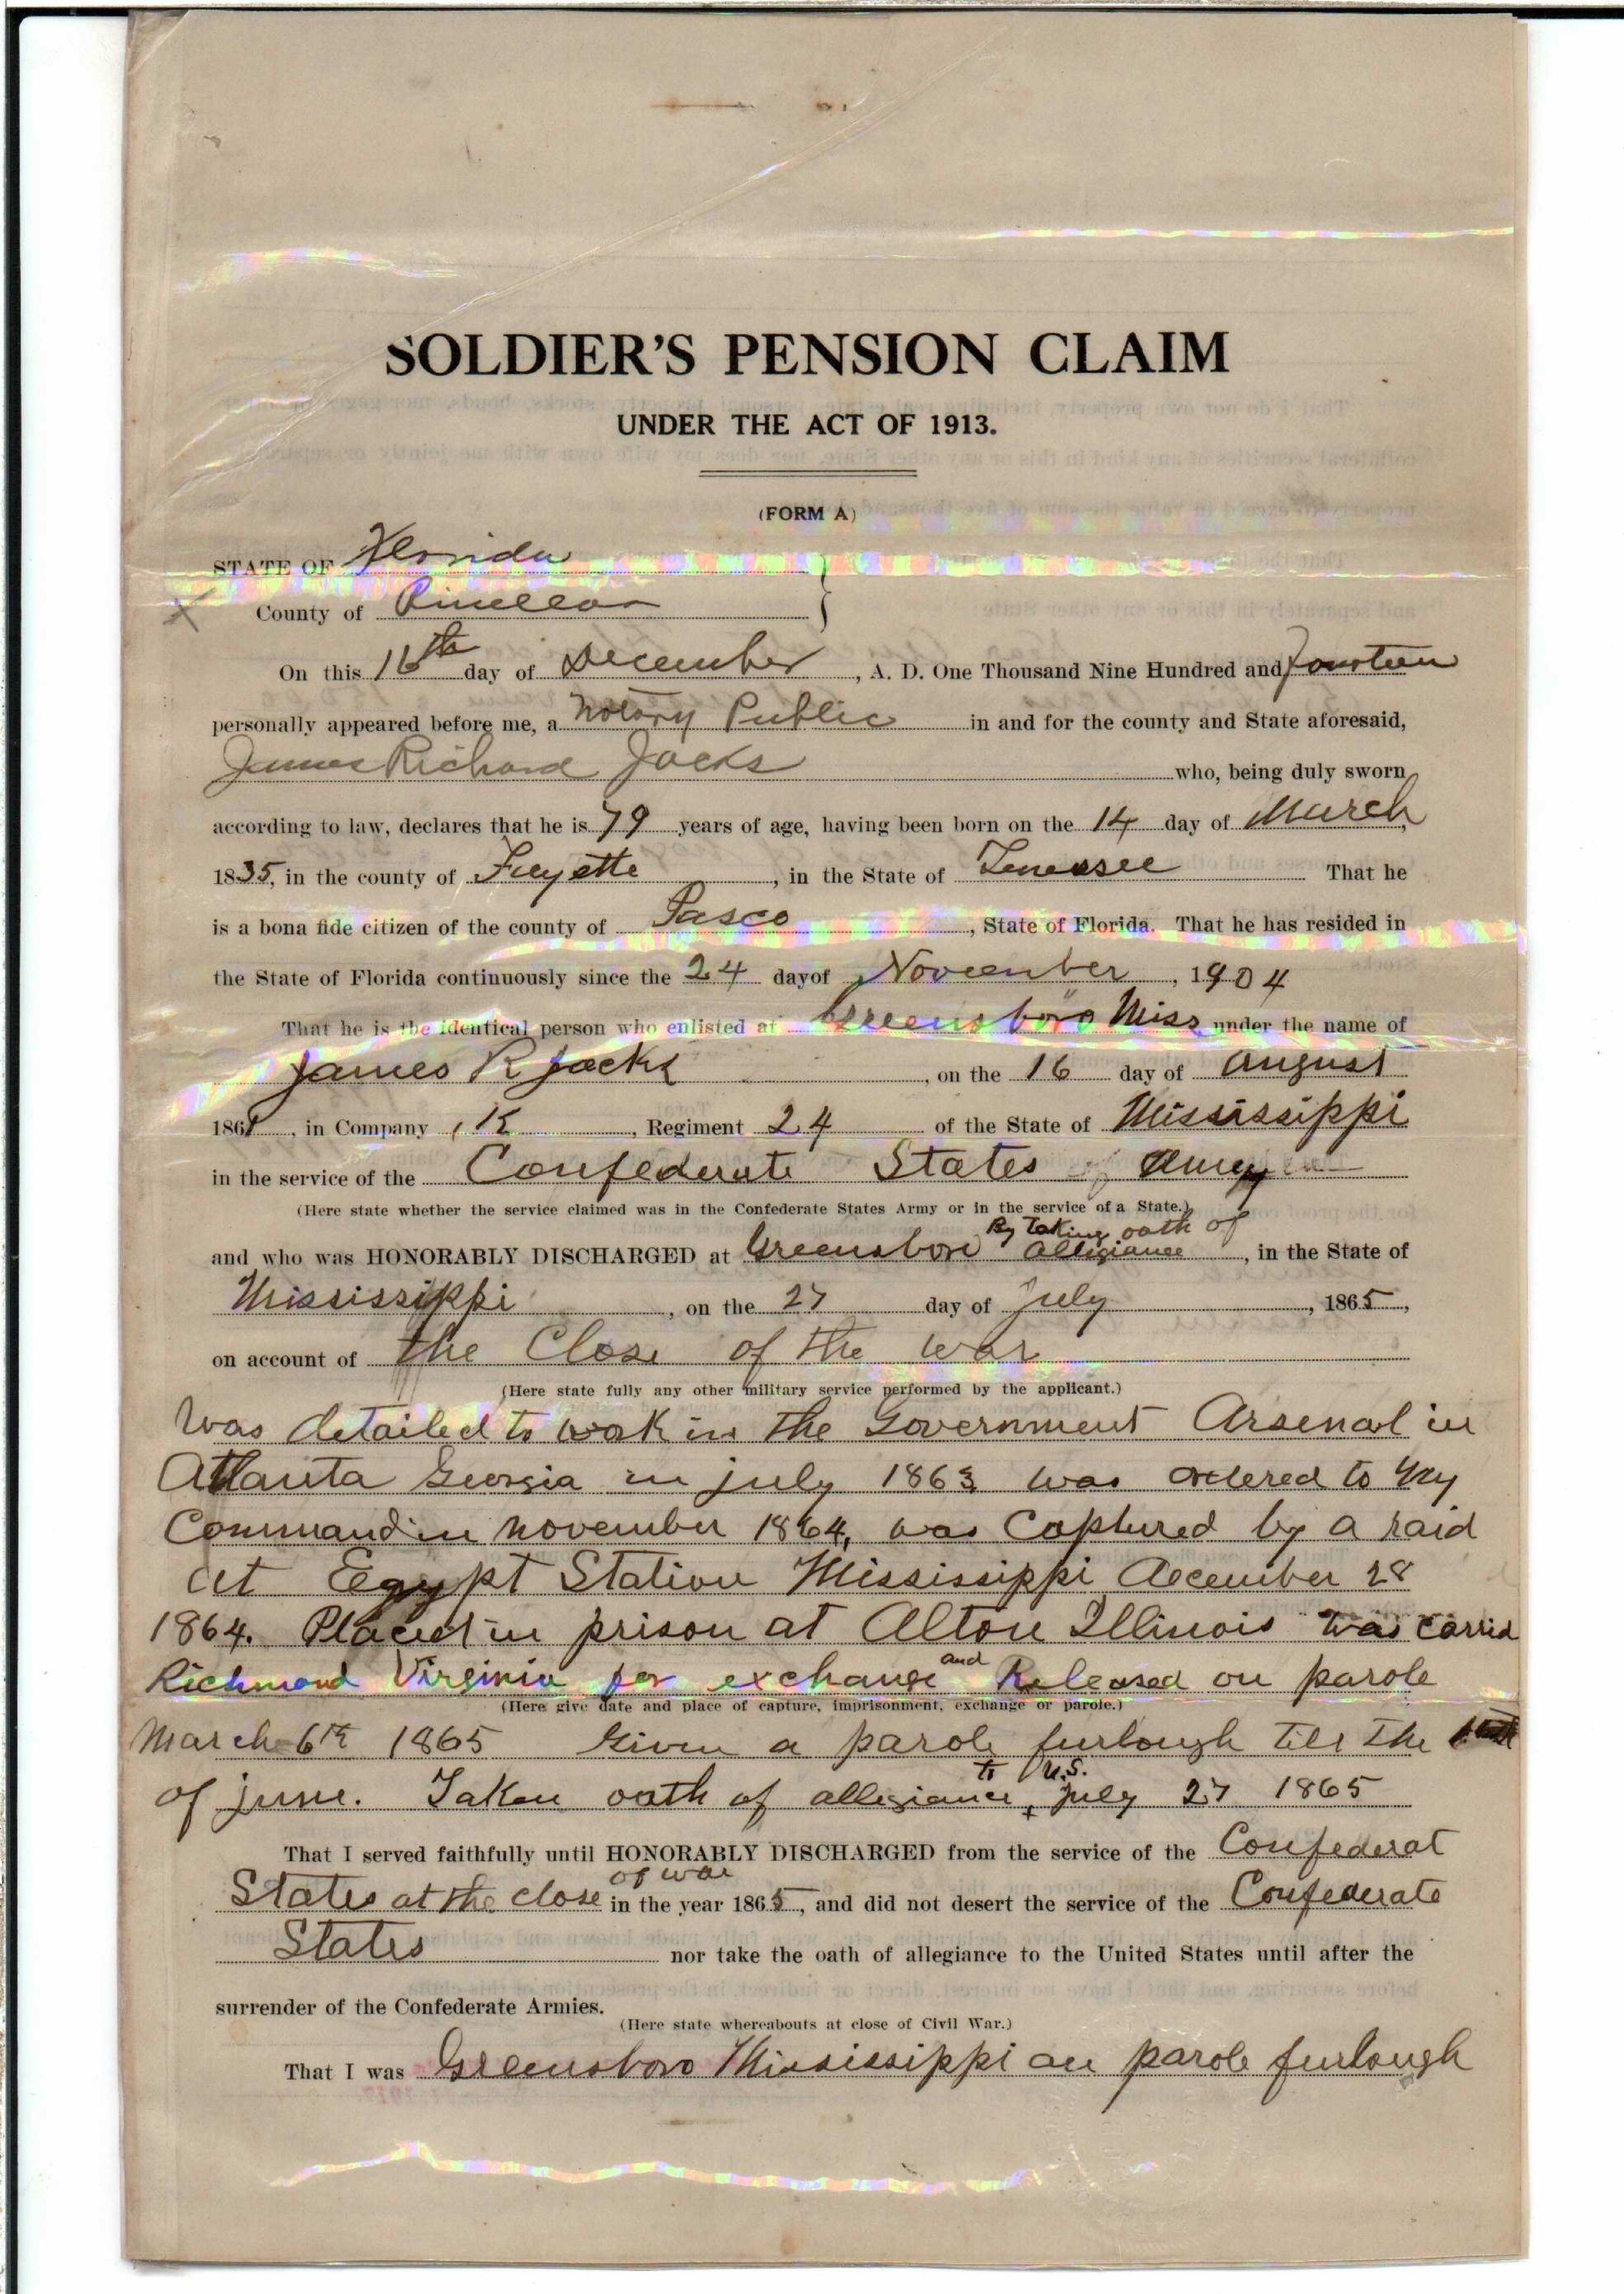 SOLDIER'S PENSION CLAIM
UNDER THE ACT OF 1913.
(FORM A)
STATE OF Florida
County of Pinellas
On this 16th day of December, A. D. One Thousand Nine Hundred and fourteen
personally appeared before me, a Notary Public in and for the county and State aforesaid,
James Richard Jacks who, being duly sworn
according to law, declares that he is 79 years of age, having been born on the 14 day of March
1835, in the county of Fayette, in the State of Tenessee That he
is a bona fide citizen of the county of Pasco, State of Florida. That he has resided in
the State of Florida continuously since the 24 day of November, 1904
That he is the identical person who enlisted at Greensboro Miss under the name of
James R Jacks, on the 16 day of August
1861, in Company K, Regiment 24 of the State of Mississippi
in the service of the Confederate States Army
(Here state whether the service claimed was in the Confederate States Army or in the service of a State.)
By Taking oath of
and who was HONORABLY DISCHARGED at Greensboro allegiance, in the State of
Mississippi, on the 27 day of July, 1865,
on account of the Close of the war
(Here state fully any other military service performed by the applicant.)
Was detailed to work in the Government Arsenal in
Atlanta Georgia in july 1863 was ordered to my
Command in november 1864, was Captured by a raid
at Egypt Station Mississippi December 28
1864. Placed in prison at Alton Illinois was carrid
Richmond Virginia for exchange and Released on parole
(Here give date and place of capture, imprisonment, exchange or parole.)
March 6th 1865 Given a parole furlough till the
of june. Taken oath of allegiance to U.S. july 27 1865
That I served faithfully until HONORABLY DISCHARGED from the service of the Confederat
States at the close of war in the year 1865, and did not desert the service of the Confederate
States nor take the oath of allegiance to the United States until after the
surrender of the Confederate Armies.
(Here state whereabouts at close of Civil War.)
That I was Greensboro Mississippi on parole furlough